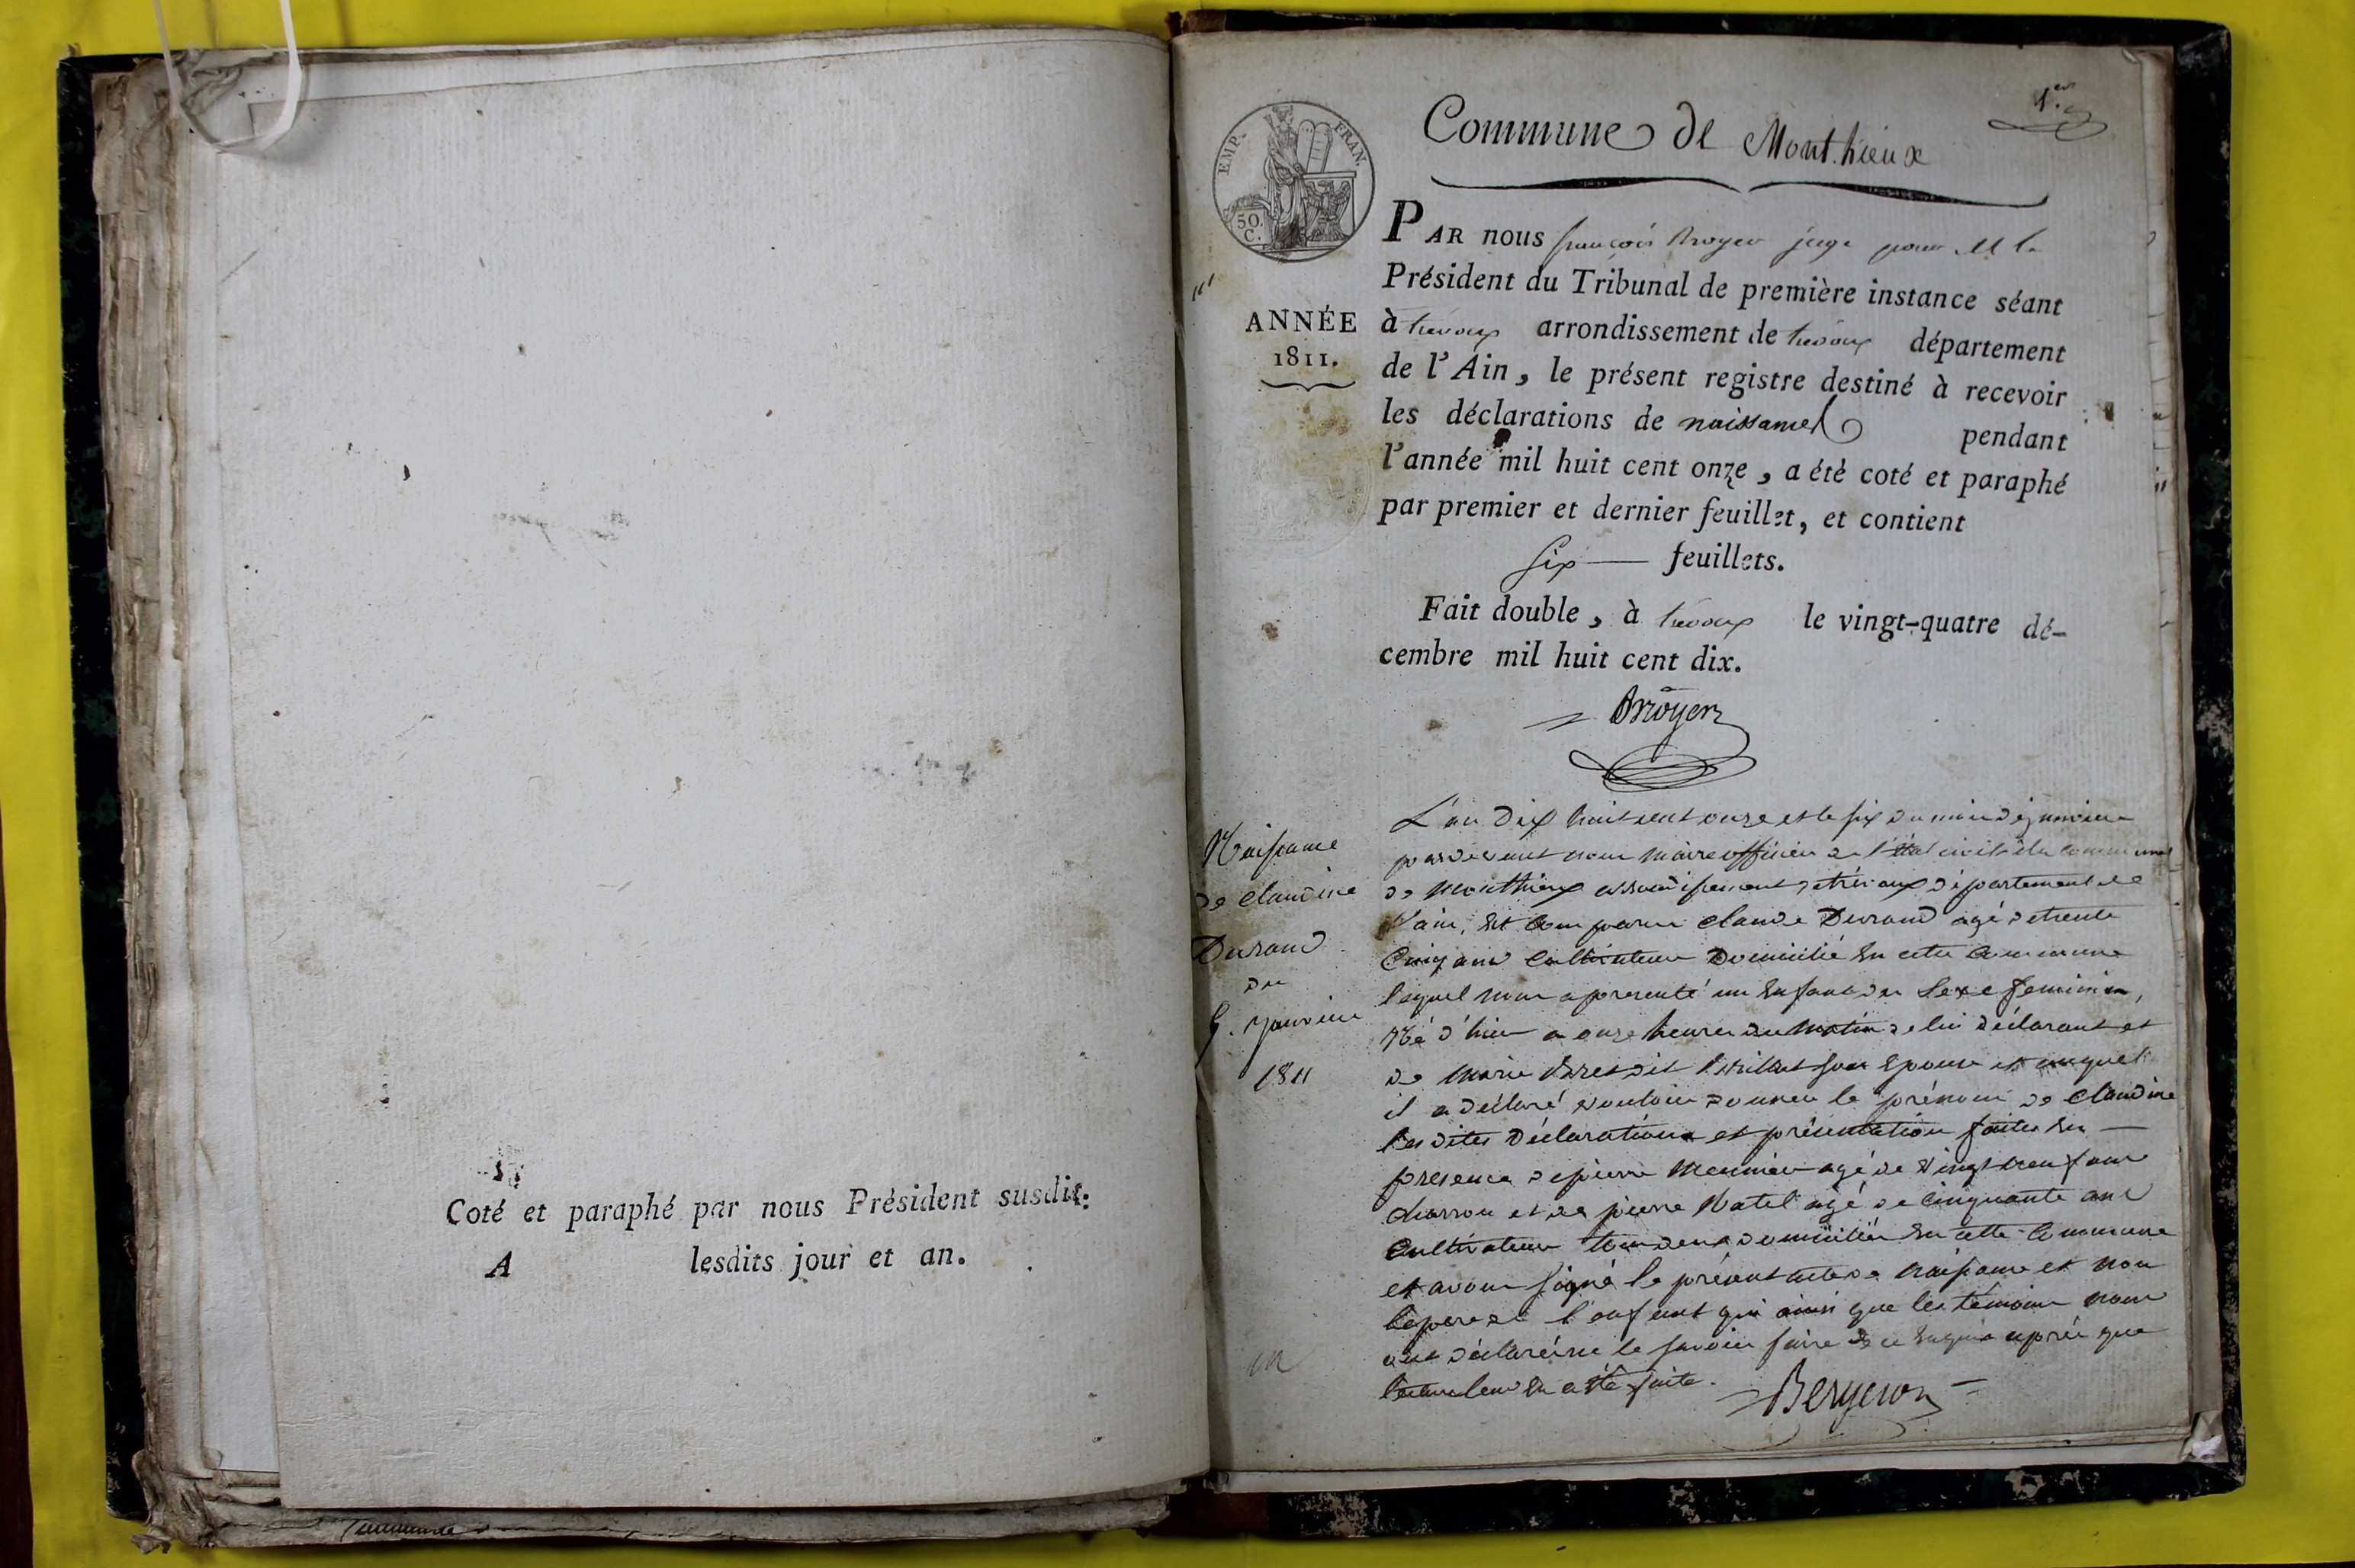 Coté et paraphé par nous Président susdit.
A lesdits jour et an.
1er
Commune de Monthieux
EMP. FRAN.
50 C.
ANNÉE
1811.
PAR nous françois Broyer juge pour M le
Président du Tribunal de première instance séant
à trevoux arrondissement de trevoux département
de l'Ain, le présent registre destiné à recevoir
les déclarations de naissances pendant
l'année mil huit cent onze, a été coté et paraphé
par premier et dernier feuillet, et contient
six feuillets.
Fait double, à trevoux le vingt-quatre dé-
cembre mil huit cent dix.
Broyer
Naissance
de Claudine
Durand
du
5. janvier
1811
L'an dix huit cent onze et le six du mois de janvier
pardevant nous maire officier de l'état civil de la commune
de Monthieux arrondissement de trévoux département de
l'ain, est comparu claude Durand agé de trente
cinq ans cultivateur domicilié en cette commune
lequel nous a presenté un enfant du sexe feminin,
né d'hier a onze heures du matin de lui déclarant et
de marie son epouse et auquel
il a déclaré vouloir donner le prénom de claudine
les dites déclarations et présentation faites en
presence de pierre Meunier agé de vingt neuf ans
charron et de pierre Natel agé de cinquante ans
cultivateur tous deux domiciliés en cette commune
et avons signé le présent acte de naissance et non
le pere de l'enfant qui ainsi que les témoins nous
ont déclaré ne le savoir faire de ce enquis après que
lecture leur en a été faite.
Bergeron